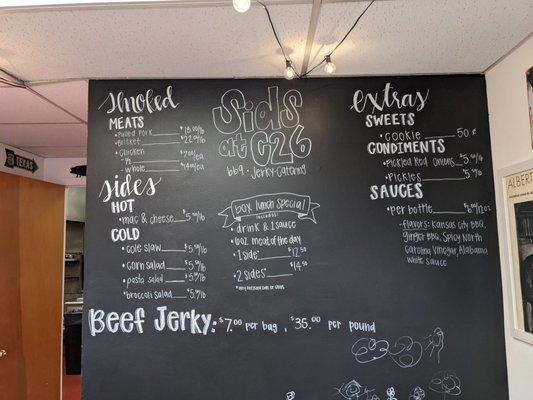 TEXAS
smoked
MEATS
• Pulled Pork $18.00/lb
• Brisket $22.00/lb
• Chicken
½ $7.00/ea
whole $14.00/ea
sides
HOT
• mac & cheese $5.00/lb
COLD
• cole slaw $5.00/lb
• corn salad $5.00/lb
• pasta salad $5.00/lb
• broccoli salad $5.00/lb
Sids
at 626
bbq · Jerky · Catering
box lunch special
includes:
• drink & 1 sauce
• 6oz. meat of the day
• 1 side $12.50
• 2 sides $14.50
extras
SWEETS
• cookie 50¢
CONDIMENTS
• Pickled Red Onions
• Pickles
SAUCES
• per bottle
- flavors: Kansas City BBQ,
Ginger BBQ, Spicy North
Carolina Vinegar, Alabama
White Sauce
Beef Jerky: $7.00 per bag, $35.00 per pound
ALBERT